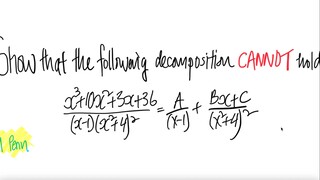 Show that the following decomposition CANNOT hold
x³+10x²+3x+36 / (x-1)(x²+4)² = A / (x-1) + Bx+C / (x²+4)²
Penn